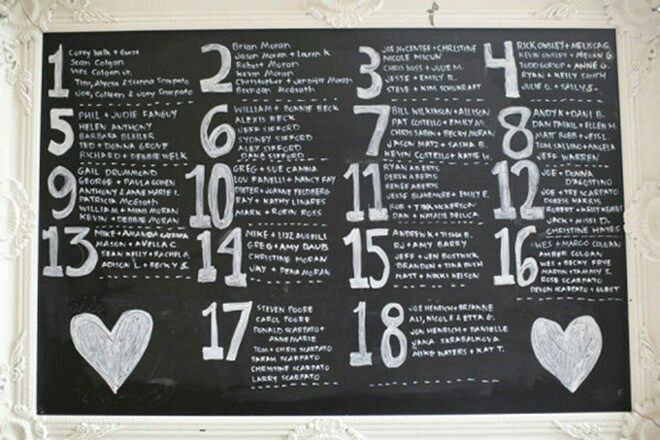 1
Corey Welk + Guest
Sean Colgan
Wes Colgan Jr.
Tim, Alyssa + Sianna Scarpato
Joe, Colleen + Joey Scarpato
2
Brian Moran
Jason Moran + Lauren K.
Robert Moran
Kevin Moran
Christopher + Jennifer Moran
Brendan McGrath
3
Joe McEntee + Christine
Nicole Miscun
Chris Wiss + Julie M.
Jesse + Emily R.
Steve + Kim Schukraft
4
Rick Onsley + Melissa G.
Kevin Onsley + Megan G.
Todd Group + Anne G.
Ryan + Kelly Smith
Julie G. + Sally S.
5
Phil + Judie Fanguy
Helen Anthony
Barbara Bleiler
Ted + Donna Grove
Richard + Debbie Welk
6
William + Bonnie Beck
Alexis Beck
Jeff Sifford
Sydney Sifford
Alex Sifford
Dane Sifford
7
Bill Wilkinson + Allison
Pat Costello + Emily M.
Chris Sabin + Becky Moran
Jason Matz + Sasha B.
Kevin Costello + Kate W.
8
Andy K + Dani B.
Dan Paskil + Ellen H.
Matt Robb + Jess L.
Tom Salvino + Angela
Jeff Warren
9
Gail Drummond
George + Paula Gowen
Anthony + Anne Marie I.
Patricia McGrath
William + Mimi Moran
Kevin + Debbie Moran
10
Greg + Sue Canna
Lou Fanelli + Nancy Fay
Dieter + Joanne Feldberg
Ray + Kathy Linares
Mark + Robin Ross
11
Ryan Alberts
Derek Alberts
Renee Alberts
Jesse + Emily E.
Rob + Tina
Dan + Natalie Delica
12
Joe + Donna
D'Agostino
Joe + Tre Scarpato
Doreis Harris
Robert + Kristy Koshes
Jack + Missi D.
Christine Hayes
13
Mike + Amanda
Mason + Avella C.
Sean Kelly + Rachel G.
Adison L. + Becky S.
14
Mike + Liz Laughill
Greg + Amy Daub
Christine Moran
Jay + Dena Moran
15
Andrew K + Tisha B.
RJ + Amy Barry
Jeff + Jen Bostwick
Brandon + Tina Bush
Matt + Nikki Nelson
16
Wes + Margo Colgan
Amber Colgan
Wes + Becky Frye
Martin + Tammy S.
Rose Scarpato
Devon Scarpato + Guest
17
Steven Poore
Carol Poore
Donald Scarpato +
Annemarie
Tom + Chris Scarpato
Sarah Scarpato
Christine Scarpato
Larry Scarpato
18
Joe Henrich + Brianne
Ali, Nicole + Etta G.
Jon Henrich + Danielle
Yana Sarabalkova
Mike Waters + Kat T.